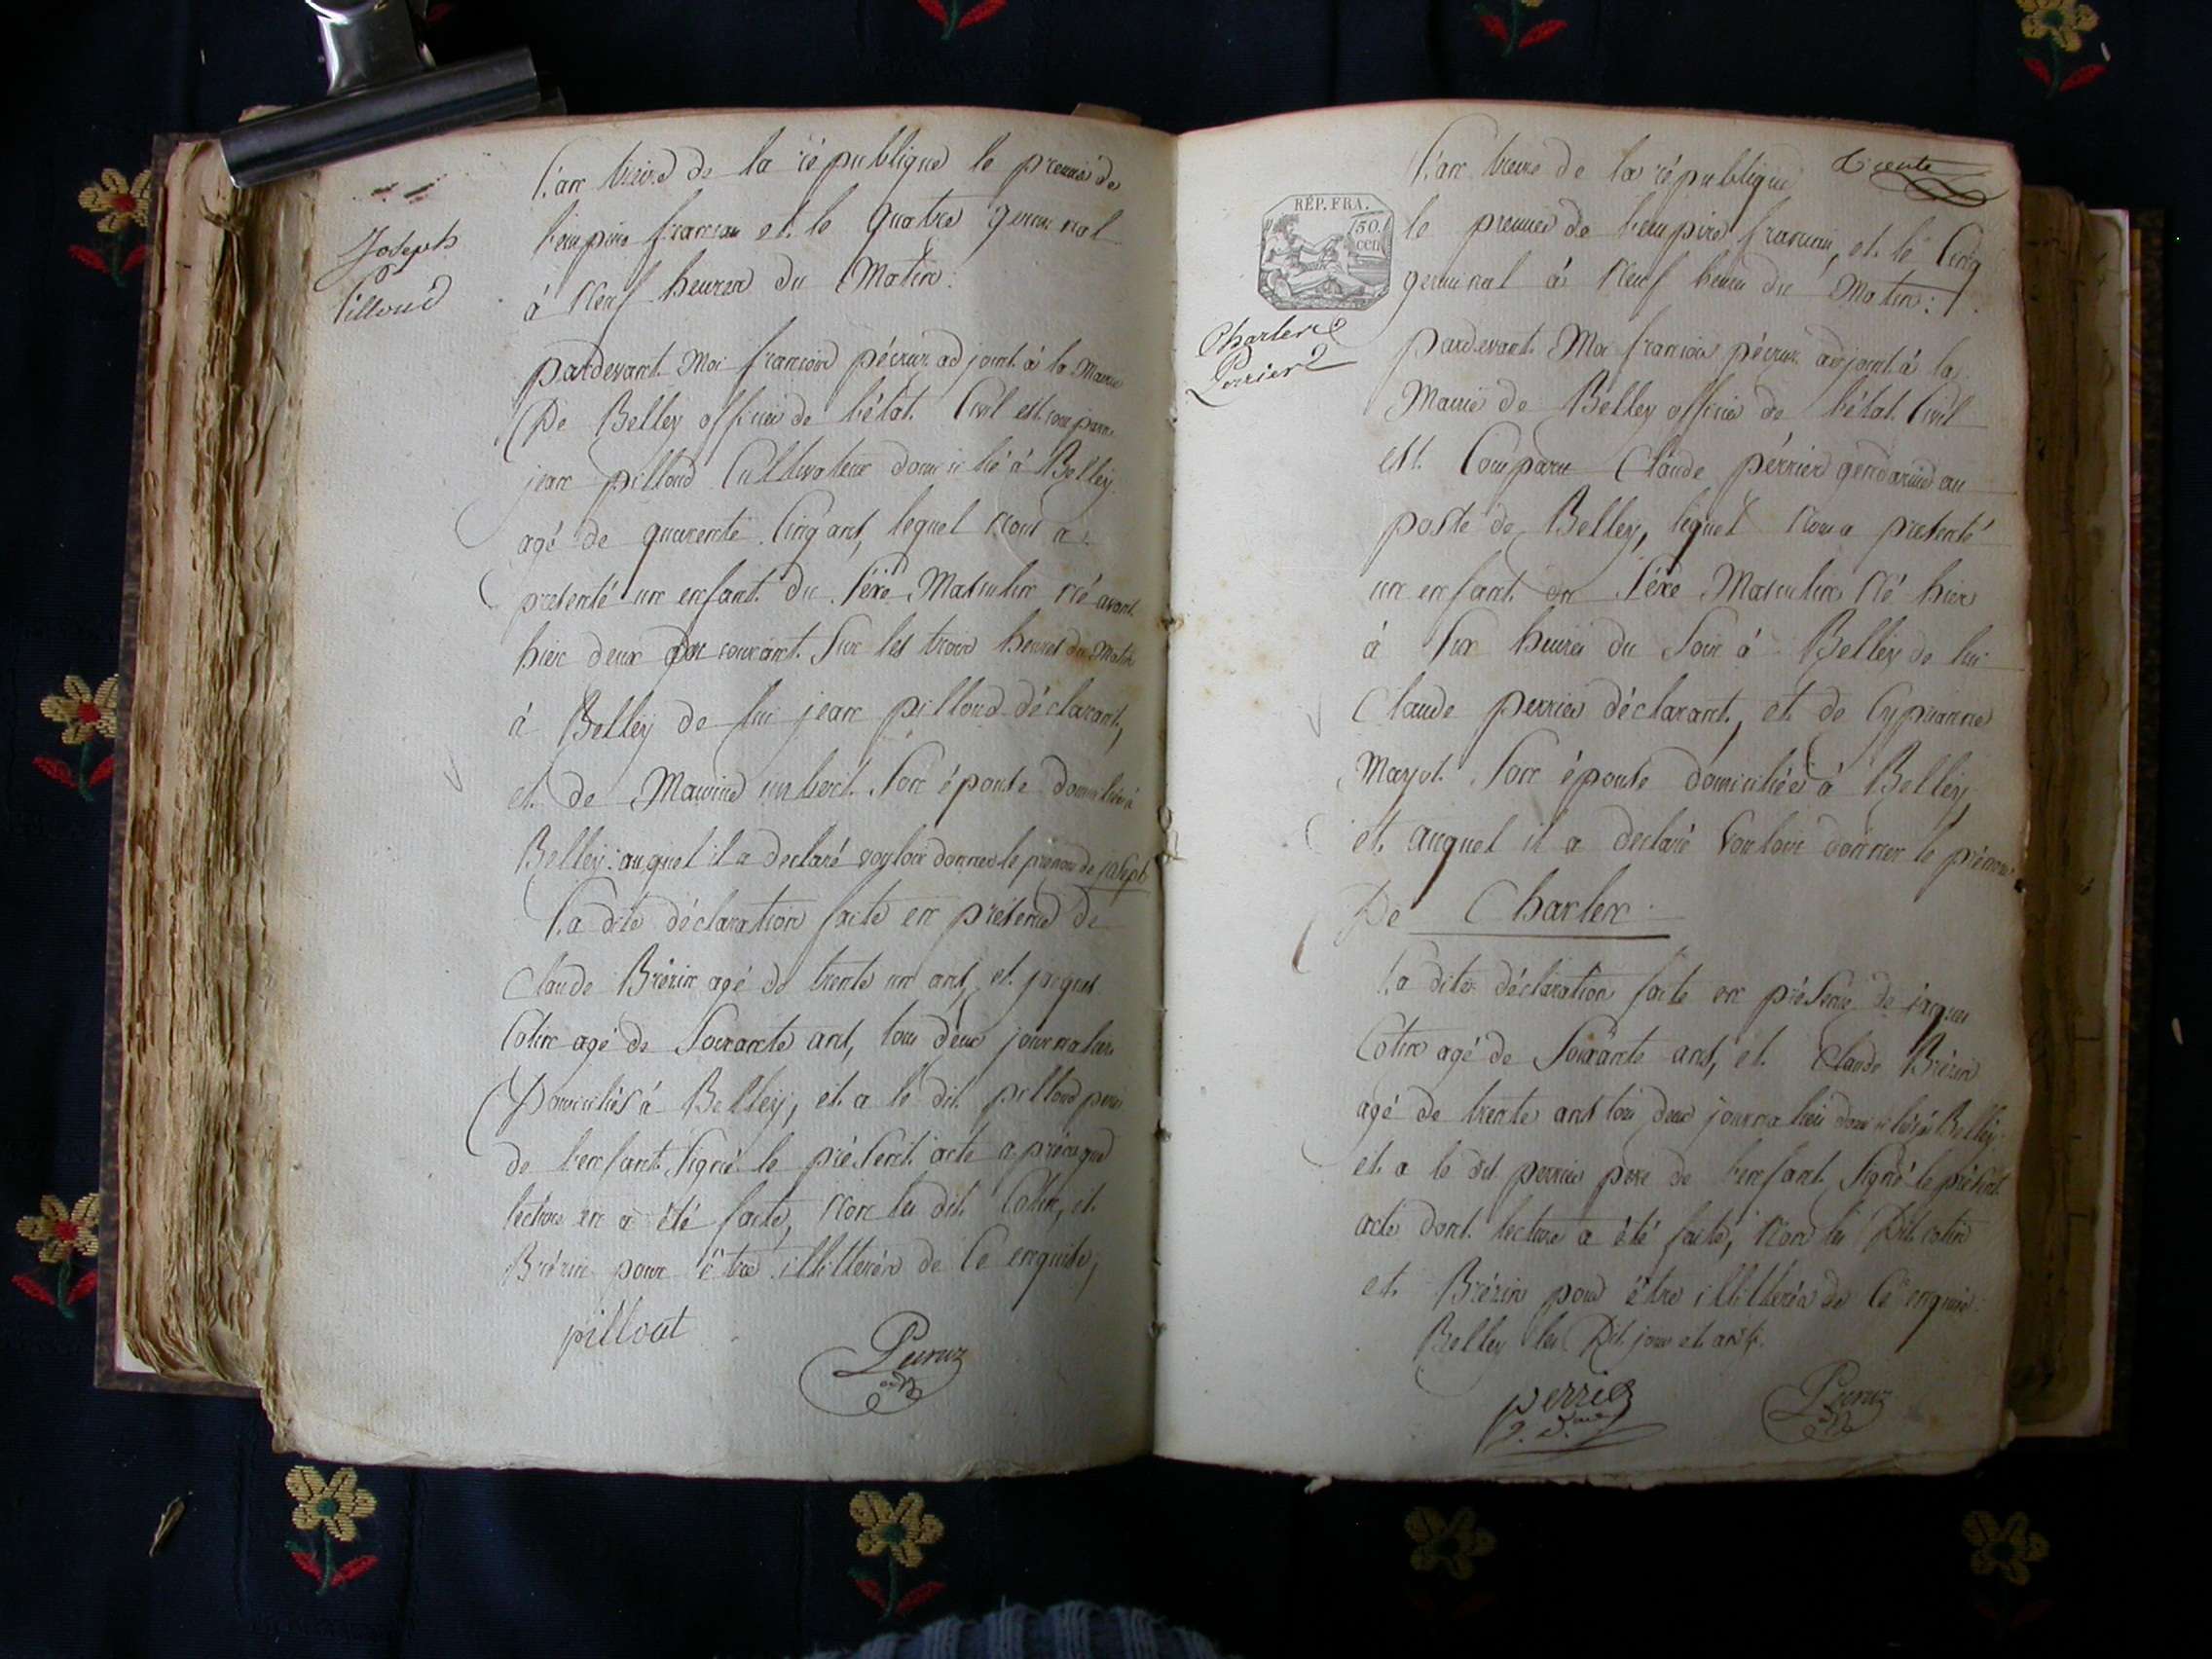 Joseph
Pilloud
L'an treize de la république le premier de
l'empire francais et le quatre germinal
à Neuf heures du Matin:
pardevant Moi francois pécruz adjoint à la Mairie
De Belley officier de l'état Civil est comparu
jean pilloud Cultivateur domicilié à Belley
agé de quarente Cinq ans, lequel nous a
presenté un enfant du sexe Masculin né avant
hier deux du courant sur les trois heures du Matin
à Belley de lui jean pilloud déclarant,
et de Maurise imbert son épouse domiciliée à
Belley: auquel il a declaré vouloir donner le prenom de joseph
La dite déclaration faite en présence de
Claude Brérin agé de trente un ans, et jacques
Cotin agé de Soixante ans, tous deux journaliers
Domiciliés à Belley, et a le dit pilloud père
de l'enfant signé le présent acte après que
lecture en a été faite, Non les dits Cotin, et
Brérin pour être illitterés de ce enquis,
pillout
Pecruz
adj
trente
L'an treize de la république
RÉP. FRA.
50
cen
le premier de l'empire francais, et le Cinq
germinal à Neuf heures du Matin:
Charles
Perrier
pardevant Moi francois pécruz adjoint à la
Mairie de Belley officier de l'état Civil
est Comparu Claude pérrier gendarme au
poste de Belley, lequel nous a presenté
un enfant du Sexe Masculin Né hier
à Six heures du Soir à Belley de lui
Claude perrier déclarant, et de Cyprianne
Mayot Son épouse domiciliée à Belley,
et auquel il a declaré Vouloir donner le prénom
De Charles
La dite déclaration faite en présence de jacques
Cotin agé de Soixante ans, et Claude Brérin
agé de trente ans tous deux journaliers domiciliés à Belley
et a le dit perrier père de l'enfant Signé le présent
acte dont lecture a été faite, Non les Dits cotin
et Brérin pour être illitterés de Ce enquis:
Belley les Dits jour et an
perrier
Pecruz
adj